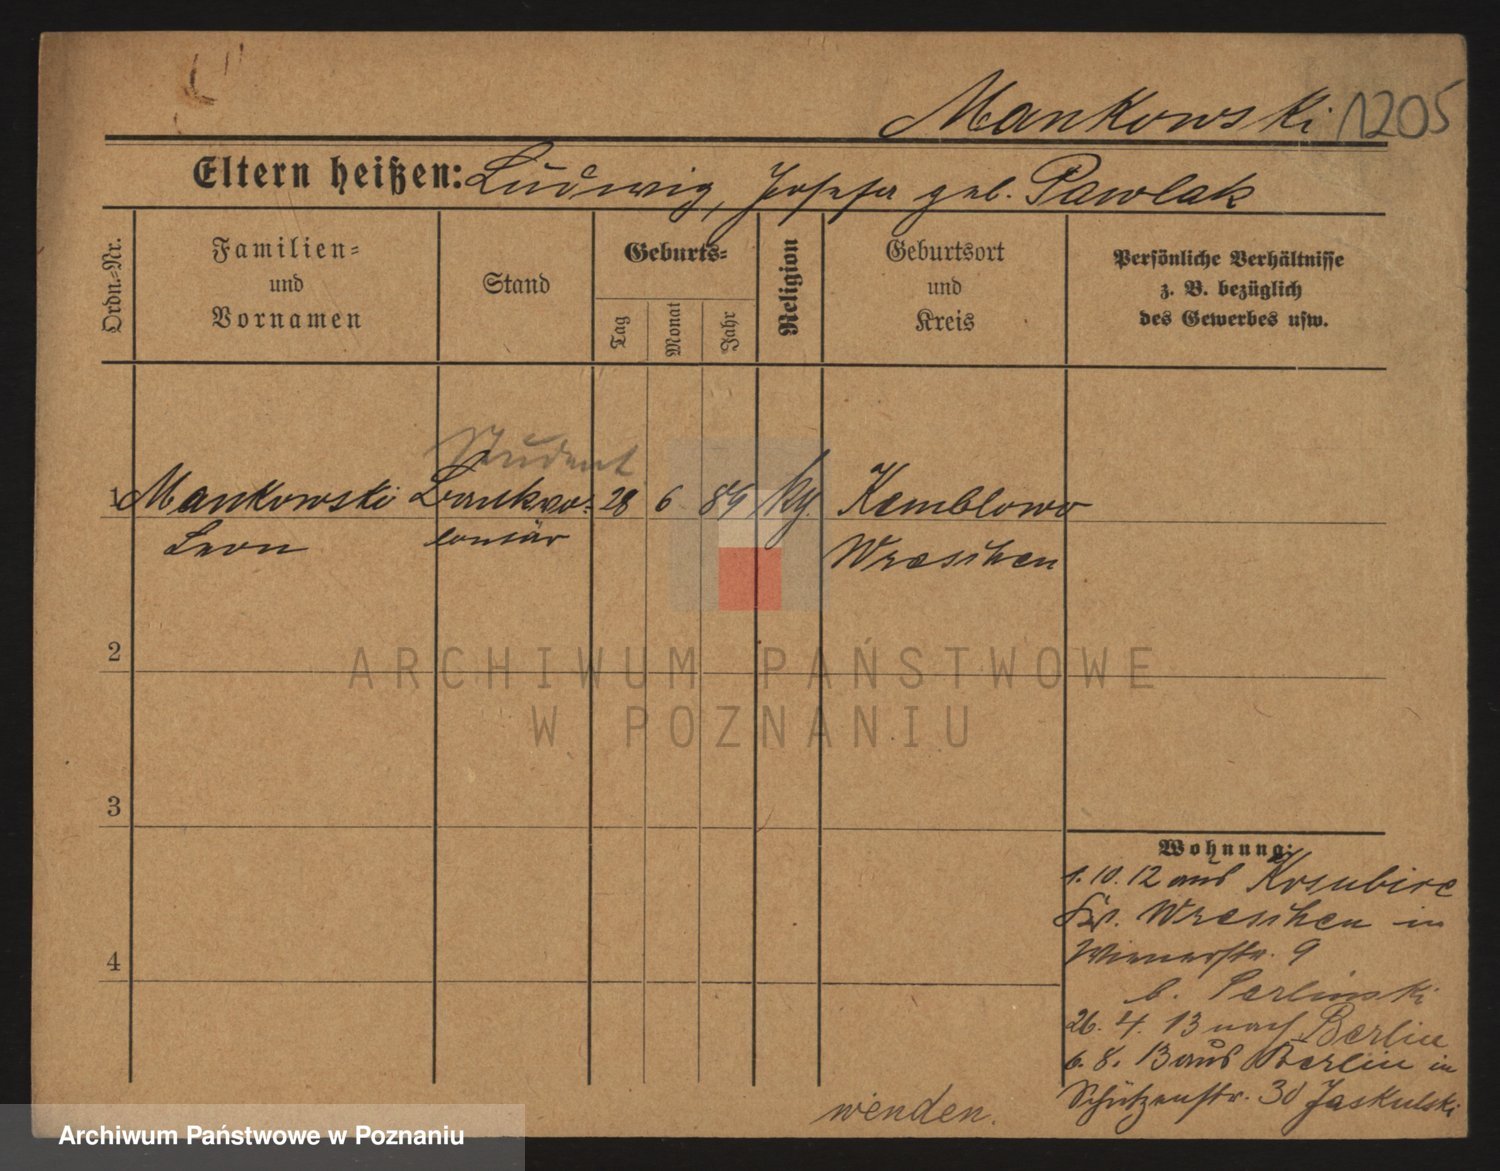 Mankowski 1205
Eltern heißen: Ludwig, Josefa geb. Pawlak
Ordn.-Nr.
Familien-
und
Vornamen
Stand
Geburts-
Tag
Monat
Jahr
Religion
Geburtsort
und
Kreis
Persönliche Verhältnisse
z. B. bezüglich
des Gewerbes usw.
Student
1 Mankowski Bankvo- 28 6 89 kg. Kemblowo
Leon lontär Wreschen
2
3
4
Wohnung:
1. 10. 12 aus Kosubiec
Kr. Wreschen in
Wienerstr. 9
b. Perlinski
26. 4. 13 nach Berlin
6. 8. 13 aus Berlin in
Schützenstr. 30 Jaskulski
wenden.
ARCHIWUM PAŃSTWOWE
W POZNANIU
Archiwum Państwowe w Poznaniu